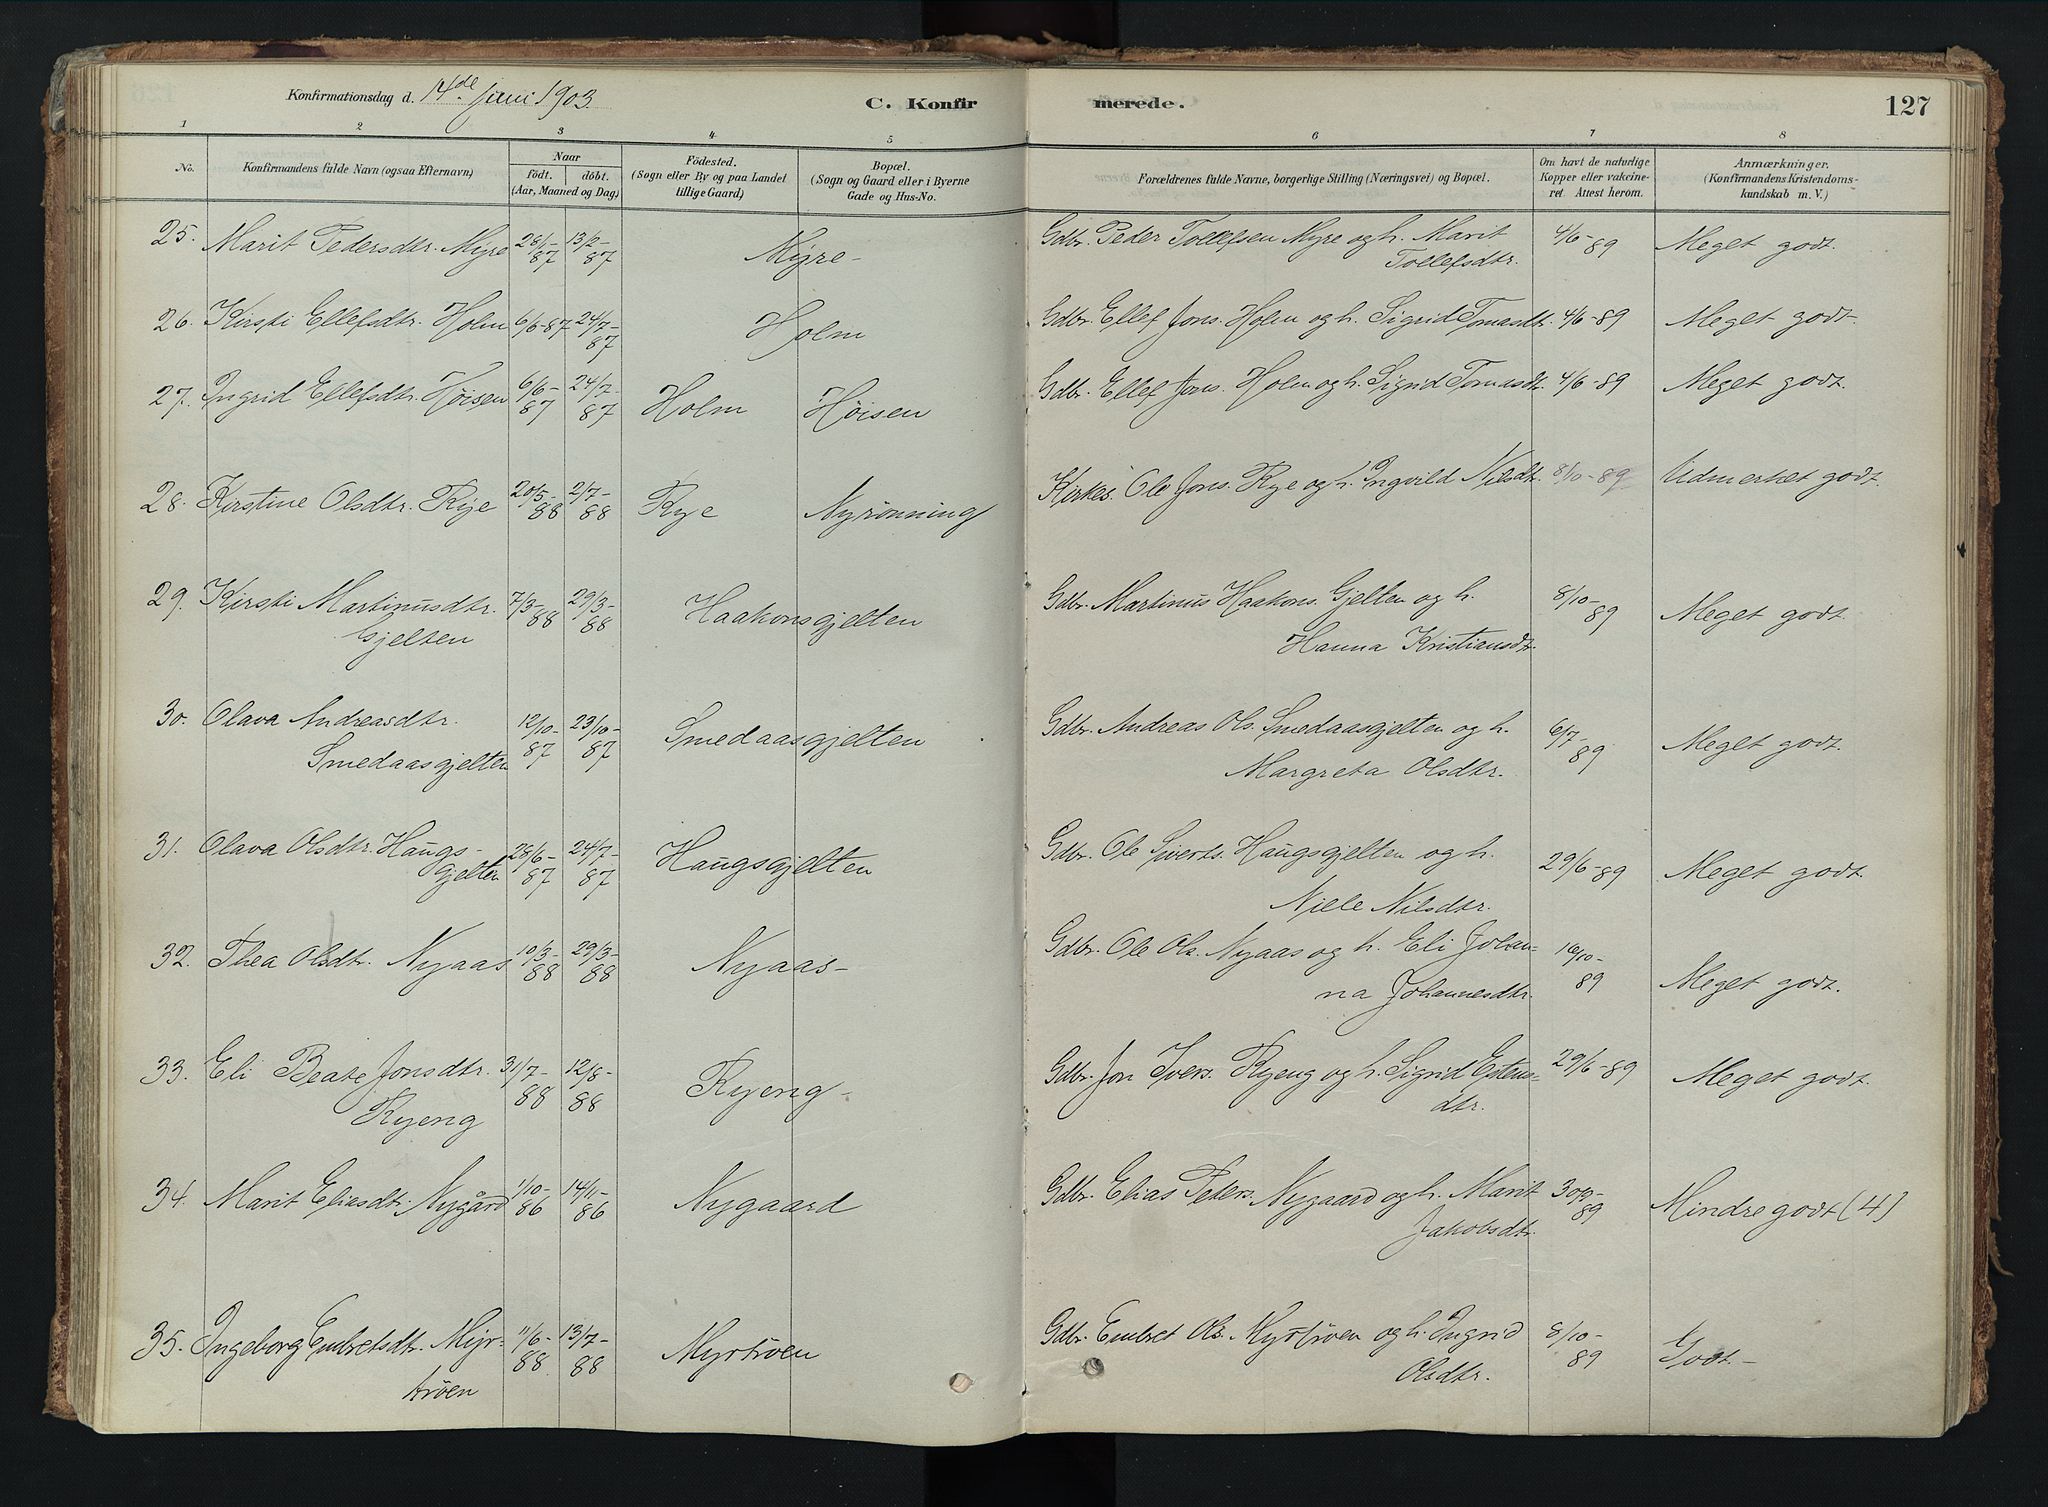 Konfirmationsdag d. 14de juni 1903
C. Konfir
merede.
127
1 2 3 4 5 6 7 8
No. Konfirmandens fulde Navn (ogsaa Efternavn) Naar födt. döbt. (Aar, Maaned og Dag) Födested. (Sogn eller By og paa Landet tillige Gaard) Bopæl. (Sogn og Gaard eller i Byerne Gade og Hus-No. Forældrenes fulde Navne, borgerlige Stilling (Næringsvei) og Bopæl. Om havt de naturlige Kopper eller vakcineret. Attest herom. Anmærkninger. (Konfirmandens Kristendomskundskab m. V.)
25. Marit Pedersdtr. Myre 28/1-87 13/2-87 Myre- Gdbr. Peder Tollefsen Myre og h. Marit Tollefsdtr. 4/6-89 Meget godt.
26. Kirsti Ellefsdtr. Holm 6/6-87 24/7-87 Holm Gdbr. Ellef Jons. Holm og h. Sigrid Tomasdtr. 4/6-89 Meget godt.
27. Ingrid Ellefsdtr. Høisen 6/6-87 24/7-87 Holm Høisen Gdbr. Ellef Jons. Holm og h. Sigrid Tomasdtr. 4/6-89 Meget godt.
28. Kirstine Olsdtr. Rye 20/5-88 2/7-88 Rye Nyrønning Kirkes. Ole Jons. Rye og h. Ingvild Nilsdtr. 8/10-89 Udmerket godt.
29. Kirsti Martinusdtr. Gjelten 7/3-88 29/3-88 Haakonsgjelten Gdbr. Martinus Haakons. Gjelten og h. Hanna Kristiansdtr. 8/10-89 Meget godt.
30. Olava Andreasdtr. Smedaasgjelten 12/10-87 23/10-87 Smedaasgjelten Gdbr. Andreas Ols. Smedaasgjelten og h. Margreta Olsdtr. 6/7-89 Meget godt.
31. Olava Olsdtr. Haugsgjelten 28/6-87 24/7-87 Haugsgjelten Gdbr. Ole Siverts. Haugsgjelten og h. Nille Nilsdtr. 29/6-89 Meget godt.
32. Thea Olsdtr. Nyaas 10/3-88 29/3-88 Nyaas- Gdbr. Ole Ols. Nyaas og h. Eli Johanna Johannesdtr. 16/10-89 Meget godt.
33. Eli Beate Jonsdtr. Ryeng 31/7-88 12/8-88 Ryeng- Gdbr. Jon Ivers. Ryeng og h. Sigrid Estensdtr. 29/6-89 Meget godt.
34. Marit Eliasdtr. Nygård 1/10-86 14/11-86 Nygaard Gdbr. Elias Peders. Nygaard og h. Marit Jakobsdtr. Mindre godt (4)
35. Ingeborg Embretsdtr. Myrtrøen 11/6-88 13/7-88 Myrtrøen Gdbr. Embret Ols. Myrtrøen og h. Ingrid Olsdtr. 8/10-89 Godt-